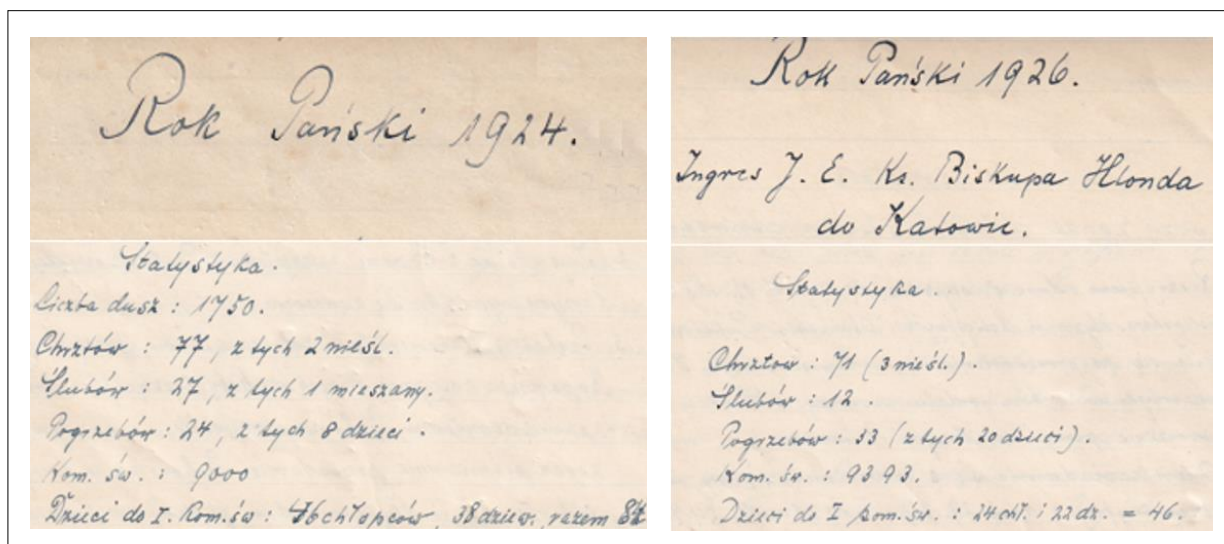 Rok Pański 1924.
Statystyka.
Liczba dusz : 1750.
Chrztów : 77, z tych 2 nieśl.
Ślubów : 27, z tych 1 mieszany.
Pogrzebów : 24, z tych 8 dzieci.
Kom. św. : 9000
Dzieci do I. Kom. św : 46 chłopców, 38 dziew., razem 84
Rok Pański 1926.
Ingres J. E. Ks. Biskupa Hlonda
do Katowic.
Statystyka.
Chrztow : 71 (3 nieśl.).
Ślubów : 12.
Pogrzebów : 33 (z tych 20 dzieci).
Kom. św. : 9393.
Dzieci do I kom. św. : 24 chł. i 22 dz. = 46.